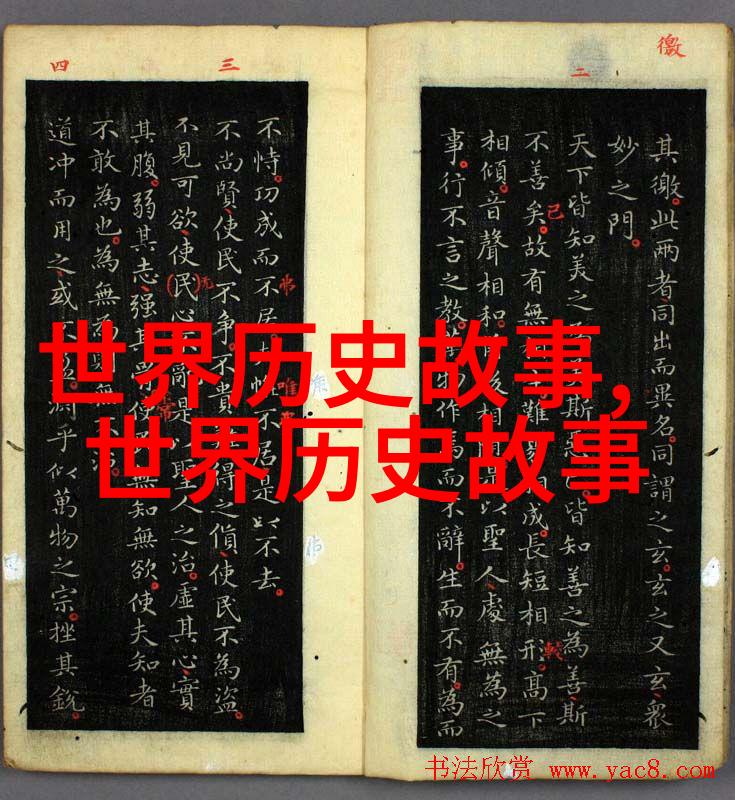 世界历史故事,
世界历史故事
徼
二
其徼。此两者、同出而異名。同謂之玄。玄之又玄、衆
妙之門。
天下皆知美之斯惡皆知善之為善斯
不善矣。故有無難成。長短相形。高下
相傾。音聲相和。相以聖人處無為之
事。行不言之教。作焉而不辭。生而不有。為而
已
較
三
不恃。功成而不居。不居是以不去。
不尚賢、使民不争。不貴得之貨、使民不為盜。
不見可欲、使(民)心是以聖人之治。虛其心、實
其腹。弱其志、强其使無知無欲。使夫知者
不敢為也。為無
道冲而用之、或淵乎似萬物之宗。挫其銳。
唯
无
四
书法欣赏 www.yac8.com